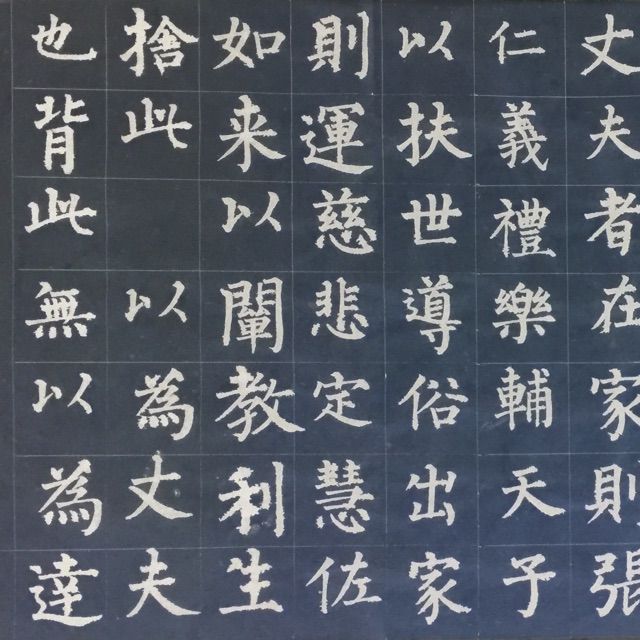 丈夫者在家則張
仁義禮樂輔天子
以扶世導俗出家
則運慈悲定慧佐
如来以闡教利生
捨此 以為丈夫
也背此無以為達